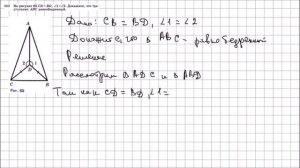 На рисунке 62 CD = BD, ∠1 = ∠2. Докажите, что тре-
угольник ABC равнобедренный.
A
D
C
B
Рис. 62
Дано: CB = BD, ∠1 = ∠2
Докажите, что в ABC - равнобедренный
Решение
Рассмотрим △ ADC и △ ABD
Так как CD = BD, ∠1 =